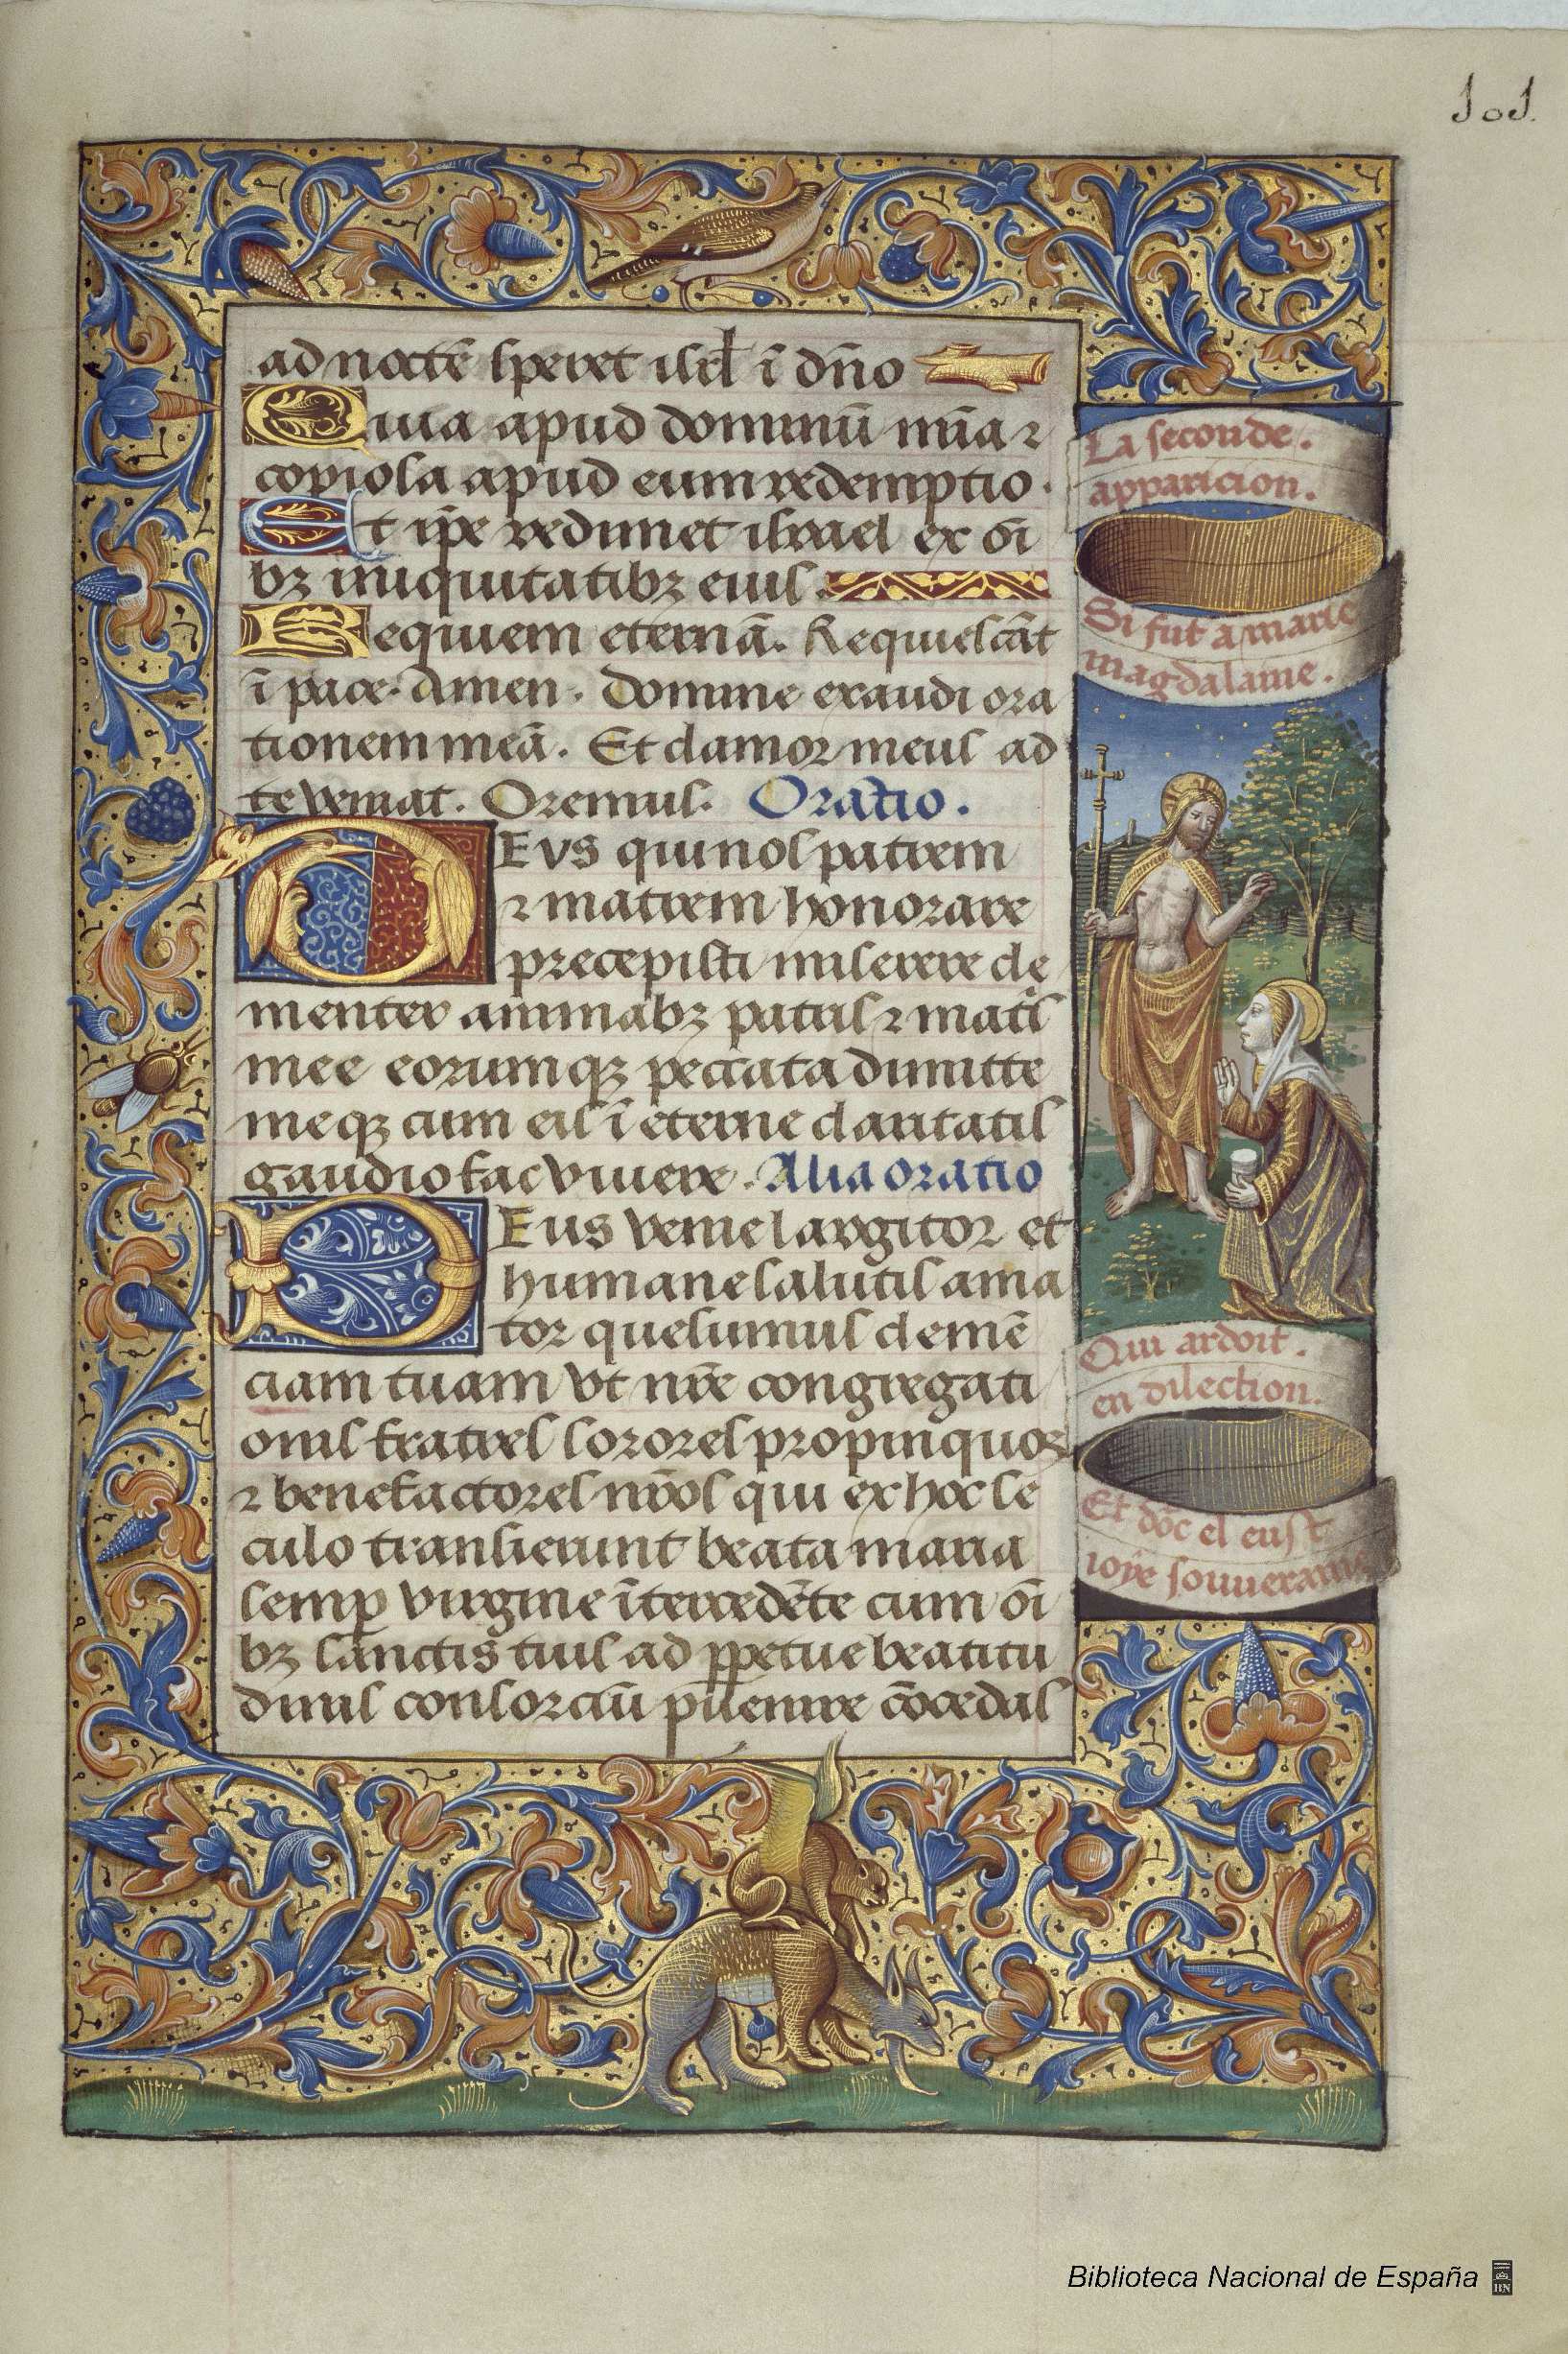 101.
ad noctē speret isrl̄ ī dn̄o
Quia apud dominū mīa ⁊
copiosa apud eum redemptio.
Et ip̄e redimet israel ex oī
bꝫ iniquitatibꝫ eius.
Requiem eternā. Requiescāt
ī pace. Amen. Domine exaudi ora
tionem meā. Et clamor meus ad
te veniat. Oremus. Oratio.
DEVS qui nos patrem
⁊ matrem honorare
precepisti miserere cle
menter animabꝫ patris ⁊ matris
mee eorumqꝫ peccata dimitte
meqꝫ cum eis ī eterne claritatis
gaudio fac vivere. Alia oratio
DEus venie largitor et
humane salutis ama
tor quesumus clemē
ciam tuam vt nr̄e congregati
onis fratres sorores propinquos
⁊ benefactores nr̄os qui ex hoc se
culo transierunt beata maria
semꝑ virgine ītercedēte cum oī
bꝫ sanctis tuis ad ꝑpetue beatitu
dinis consorciū ꝑuenire cōcedas
La seconde.
apparicion.
Si fut a marie
magdalaine.
Qui ardoit.
en dilection.
Et dōc el eust
ioye souueraine
Biblioteca Nacional de España
BN